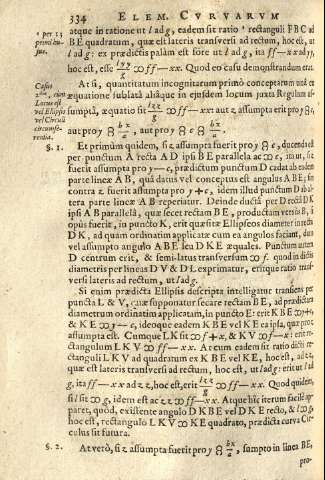 334 ELEM. CURVARUM
1 per 15
primi hujus.
atque in ratione ut l ad g, eadem sit ratio 1 rectanguli FBC ad
BE quadratum, quæ est lateris transversi ad rectum, hoc est, ut
l ad g: ex prædictis palàm est fore ut l ad g, ita ff—xx ad yy,
hoc est, esse lyy/g ∞ ff—xx. Quod eo casu demonstrandum erat.
Casus
Locus est
vel Ellipsis
vel Circuli
circumferentia.
At si, quantitatum incognitarum primò conceptarum una ex
æquatione sublatâ aliâque in ejusdem locum juxta Regulam assumptâ,
æquatio sit lzz/g ∞ ff—xx: aut z assumpta erit pro y 8 c,
aut pro y 8 bx/a, aut pro y 8 c 8 bx/a.
§. 1. Et primùm quidem, si z assumpta fuerit pro y 8 c, ducendæ est
per punctum A recta AD ipsi BE parallela ac ∞ c, ita ut, si z
fuerit assumpta pro y—c, prædictum punctum D cadat ab eadem
parte lineæ AB, quâ datus vel conceptus est angulus ABE; sin
contra z fuerit assumpta pro y+c, idem illud punctum D ab altera
parte lineæ AB reperiatur. Deinde ducta per D recta DK
ipsi AB parallelâ, quæ secet rectam BE, productam versus B, si
opus fuerit, in puncto K, erit quæsitæ Ellipseos diameter in recta
DK, ad quam ordinatim applicatæ cum ea angulos faciant, dato
vel assumpto angulo ABE seu DKE æquales. Punctum autem
D centrum erit, & semi-latus transversum ∞ f. quod in dictis
diametris per lineas DV & DL exprimatur, eritque ratio transversi
lateris ad rectum, ut l ad g.
Si enim prædicta Ellipsis descripta intelligatur transiens per
puncta L & V, quæ supponatur secare rectam BE, ad prædictam
diametrum ordinatim applicatam, in puncto E: erit KB ∞ c,
& KE ∞ y—c, ideoque eadem KBE vel KE ea ipsa, quæ pro z
assumpta est. Cumque LK sit ∞ f+x, & KV ∞ f—x: erit rectangulum
LKV ∞ ff—xx. At cum eadem sit ratio dicti rectanguli
LKV ad quadratum ex KBE vel KE, hoc est, ad zz,
quæ est lateris transversi ad rectum, hoc est, ut l ad g: erit ut l ad
g, ita ff—xx ad zz, hoc est, erit lzz/g ∞ ff—xx. Quod quidem,
si l sit ∞ g, idem est ac zz ∞ ff—xx. Atque hîc iterum facilè apparet,
quòd, existente angulo DKBE vel DKE recto, & l ∞ g,
hoc est, rectangulo LKV ∞ KE quadrato, prædicta curva Circulus
sit futura.
§. 2. At verò, si z assumpta fuerit pro y 8 bx/a, sumpto in linea BE,
pro-